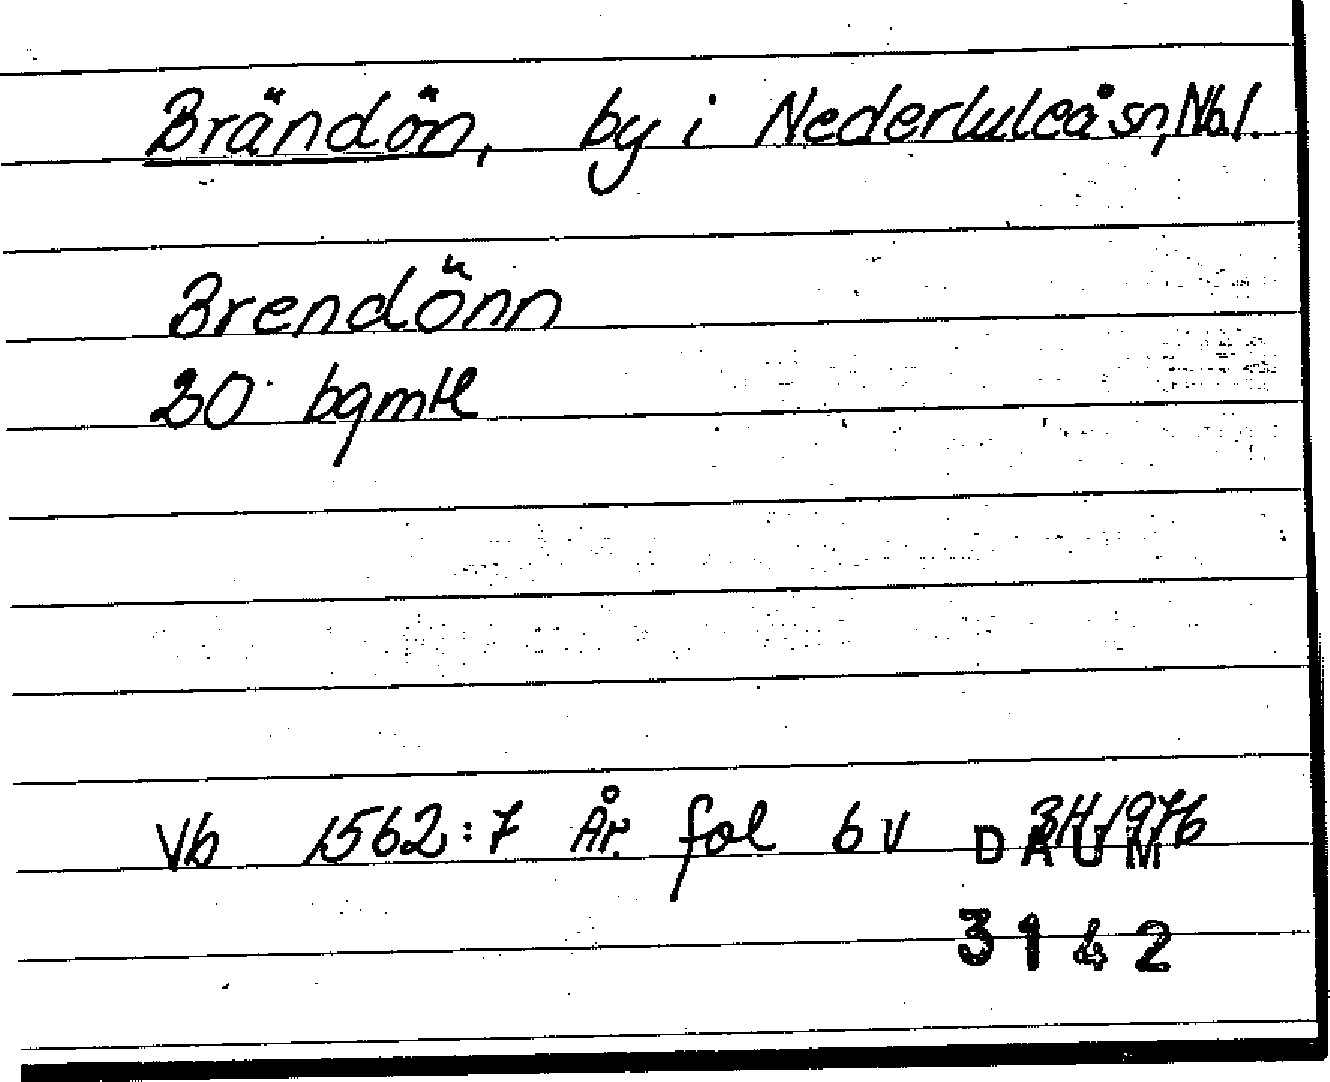 Brändön, by i Nederluleå sn, Nb.l.
Brendönn
20 bgmtl
Vb 1562:7 År. fol 6 v
DAUM
3142